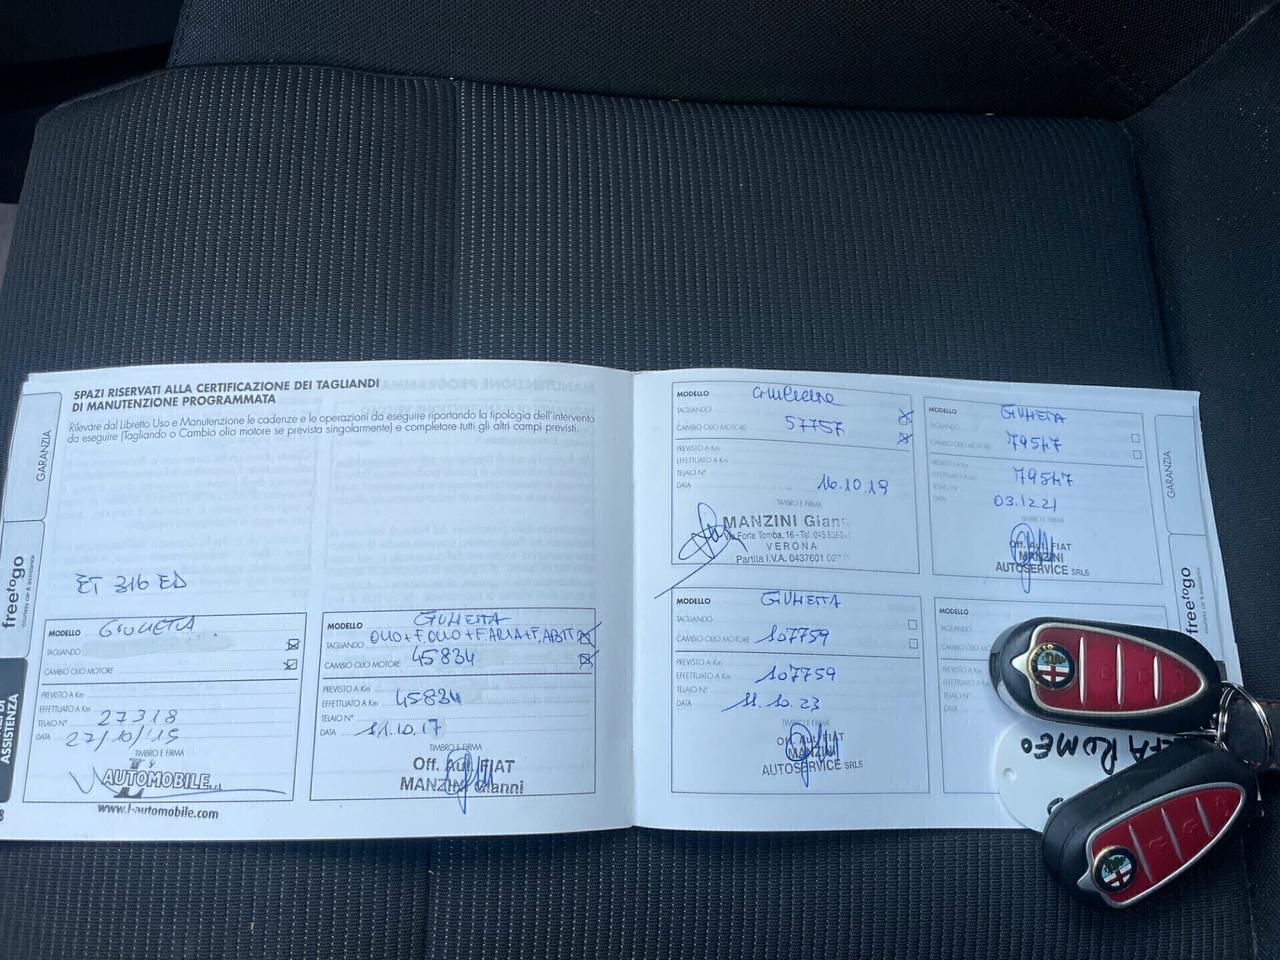 SPAZI RISERVATI ALLA CERTIFICAZIONE DEI TAGLIANDI
DI MANUTENZIONE PROGRAMMATA
Rilevare dal Libretto Uso e Manutenzione le cadenze e le operazioni da eseguire riportando la tipologia dell'intervento
da eseguire (Tagliando o Cambio olio motore se prevista singolarmente) e completare tutti gli altri campi previsti.
GARANZIA
freetogo
courtesy car & assistance
ASSISTENZA
ET 316 ED
MODELLO GIULIETTA
TAGLIANDO
CAMBIO OLIO MOTORE
PREVISTO A Km
EFFETTUATO A Km 27318
TELAIO N°
DATA 27/10/'15
TIMBRO E FIRMA
AUTOMOBILE s.r.l.
www.l-automobile.com
8
MODELLO GIULIETTA
TAGLIANDO OLIO+F.OLIO+F.ARIA+F.ABITT
CAMBIO OLIO MOTORE 45834
PREVISTO A Km
EFFETTUATO A Km 45834
TELAIO N°
DATA 11.10.17
TIMBRO E FIRMA
Off. Aut. FIAT
MANZINI Gianni
MODELLO GIULIETTA
TAGLIANDO
CAMBIO OLIO MOTORE 57757
PREVISTO A Km
EFFETTUATO A Km
TELAIO N°
DATA 16.10.19
TIMBRO E FIRMA
MANZINI Giann
Via Forte Tomba, 16 - Tel. 045
VERONA
Partita I.V.A. 0437601
MODELLO GIULIETTA
TAGLIANDO
CAMBIO OLIO MOTORE 79547
PREVISTO A Km
EFFETTUATO A Km 79547
TELAIO N°
DATA 03.12.21
TIMBRO E FIRMA
Off. Aut. FIAT
MANZINI
AUTOSERVICE SRLS
MODELLO GIULIETTA
TAGLIANDO
CAMBIO OLIO MOTORE 107759
PREVISTO A Km
EFFETTUATO A Km 107759
TELAIO N°
DATA 11.10.23
TIMBRO E FIRMA
Off. Aut. FIAT
MANZINI
AUTOSERVICE SRLS
MODELLO
TAGLIANDO
CAMBIO OLIO
PREVISTO A Km
EFFETTUATO
TELAIO N°
DATA
GARANZIA
freetogo
courtesy car & assistance
FA ROMEO